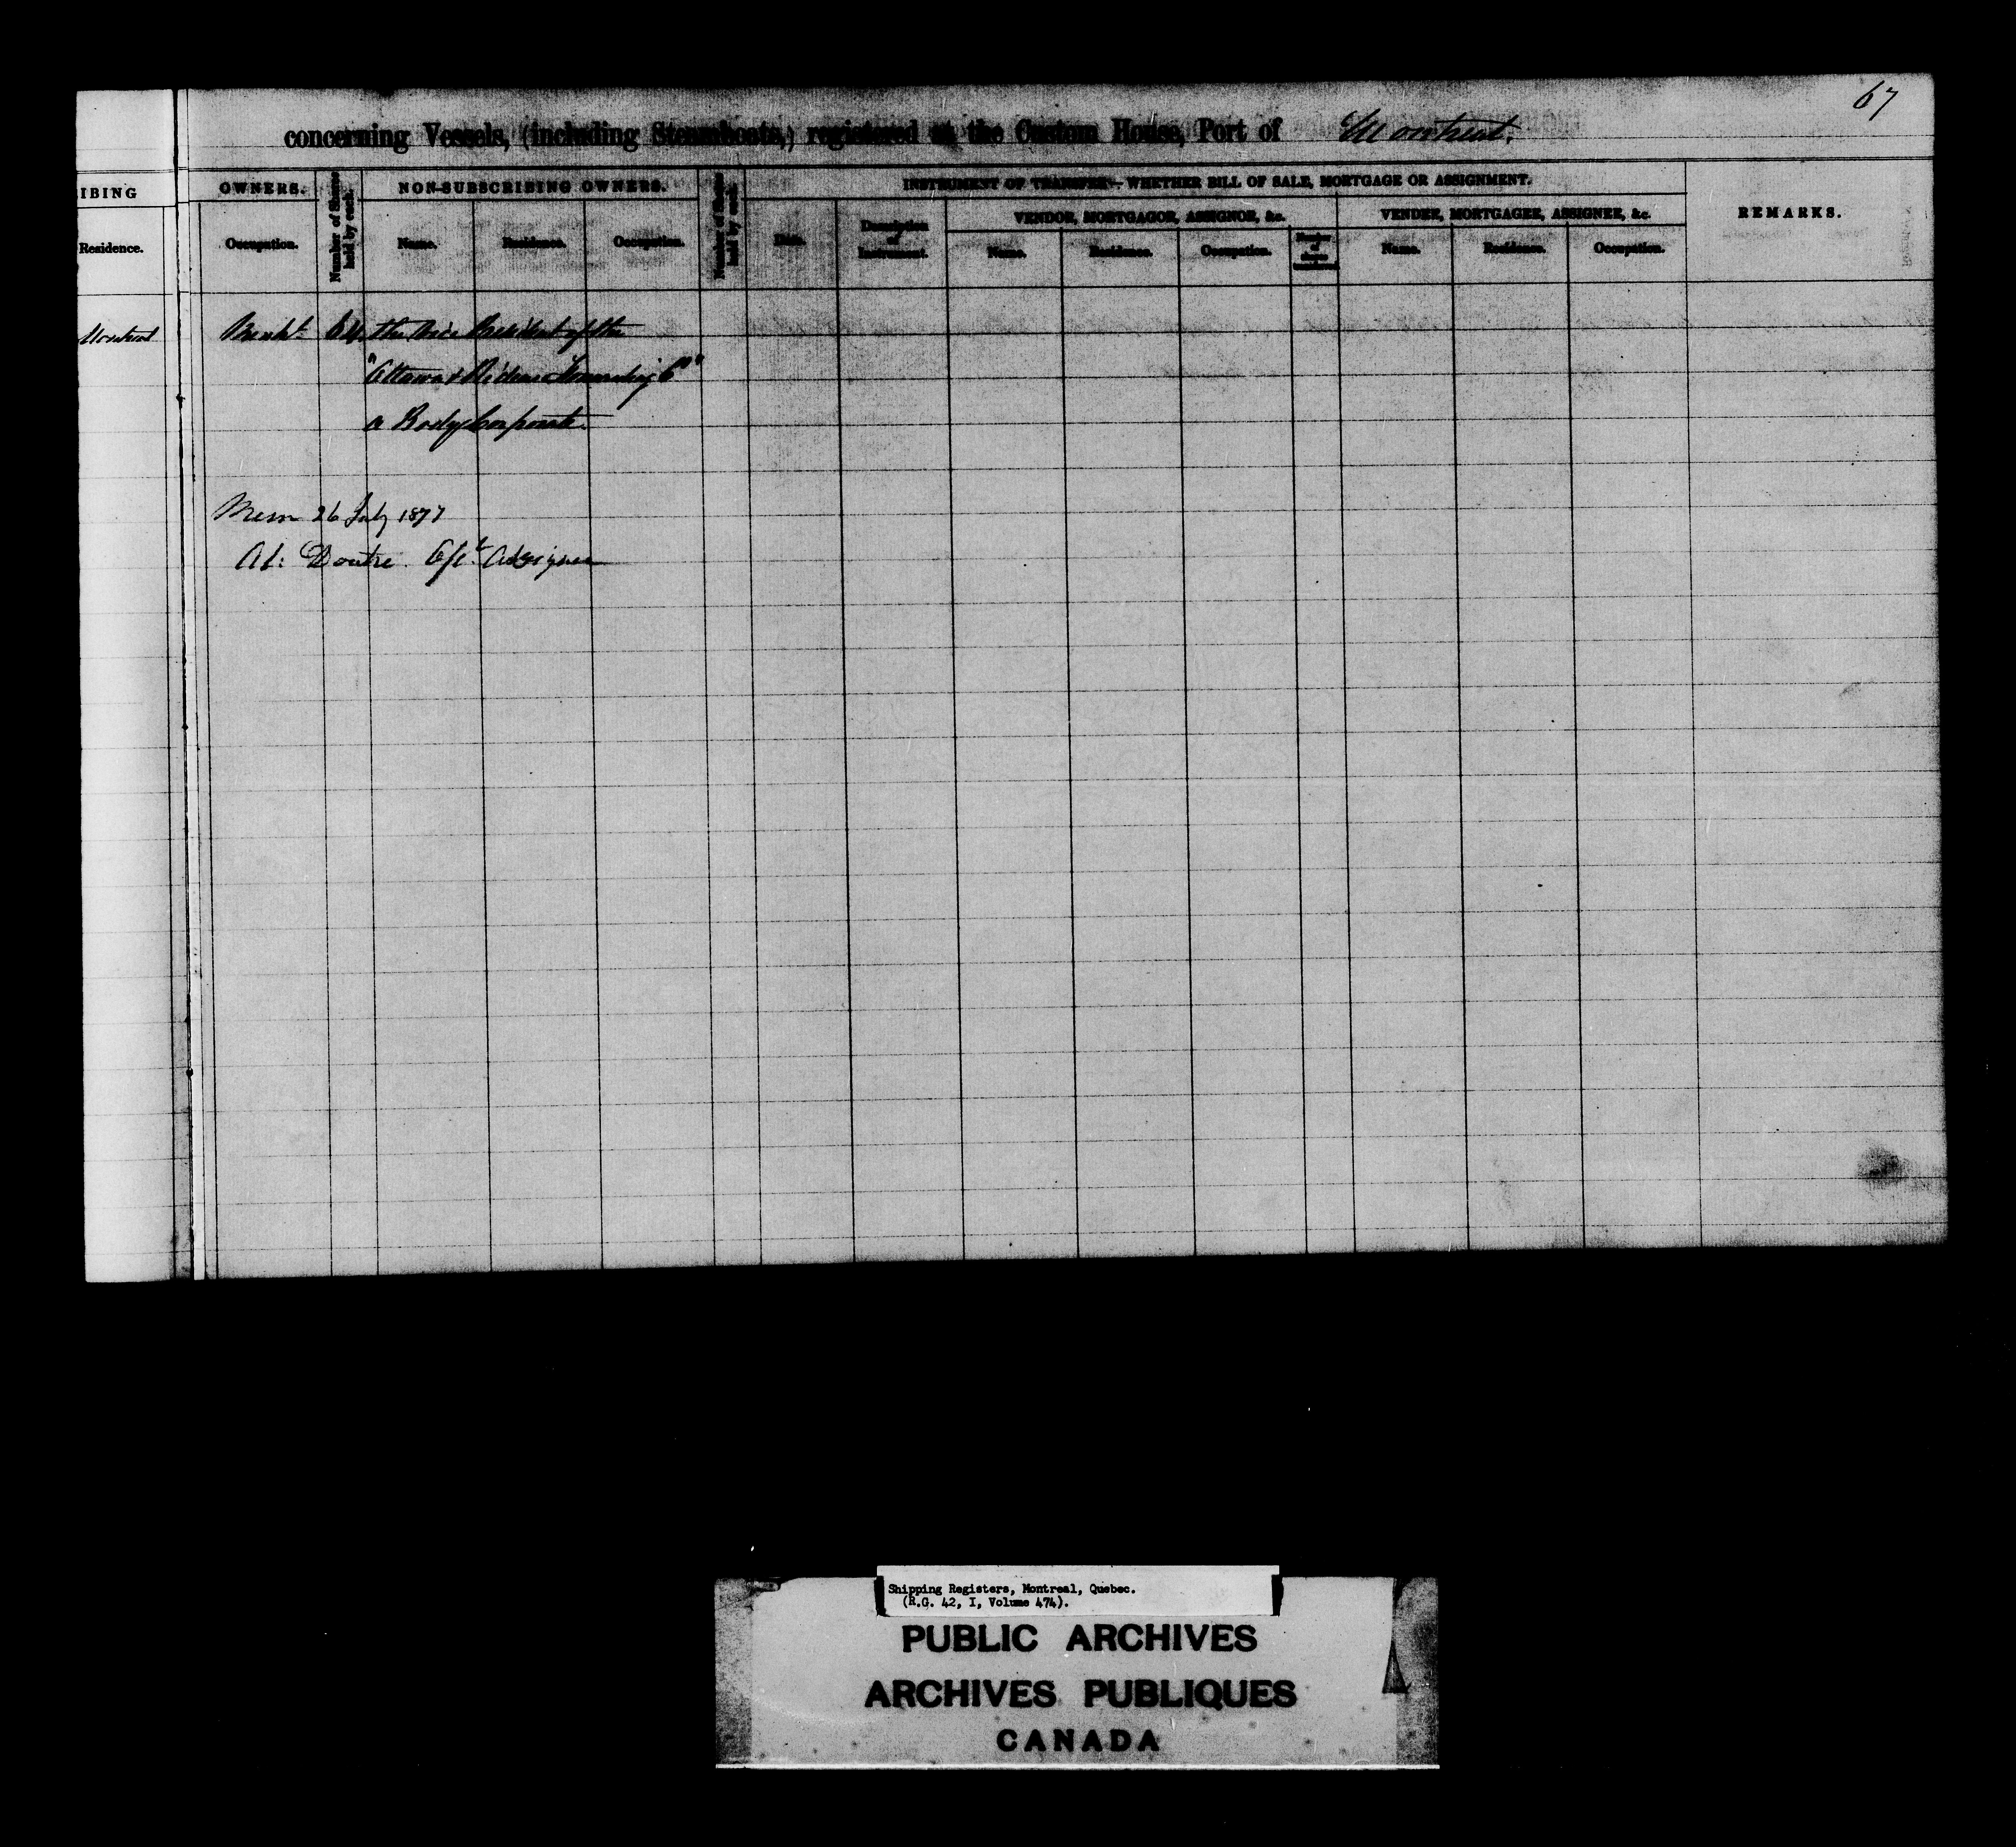 67
concerning Vessels, (including Steamboats,) registered at the Custom House, Port of Montreal.
IBING OWNERS. Number of Shares held by each. NON-SUBSCRIBING OWNERS. Number of Shares held by each. INSTRUMENT OF TRANSFER—WHETHER BILL OF SALE, MORTGAGE OR ASSIGNMENT. REMARKS.
VENDOR, MORTGAGOR, ASSIGNOR, &c. VENDEE, MORTGAGEE, ASSIGNEE, &c.
Residence. Occupation. Name. Residence. Occupation. Date. Description of Instrument. Name. Residence. Occupation. Number of Shares Name. Residence. Occupation.
Montreal Merch't 64 the Vice President of the
"Ottawa & Rideau Forwarding Co"
a Body Corporate.
Mem 26 July 1877
Doutre. Assignee
Shipping Registers, Montreal, Quebec.
(R.G. 42, I, Volume 474).
PUBLIC ARCHIVES
ARCHIVES PUBLIQUES
CANADA